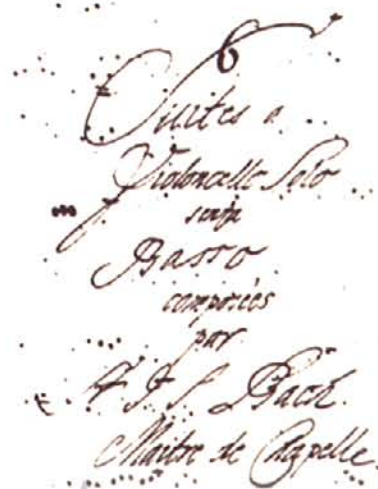 6
Suites a
Violoncello Solo
senza
Basso
composées
par
Sr. J. S. Bach.
Maitre de Chapelle.